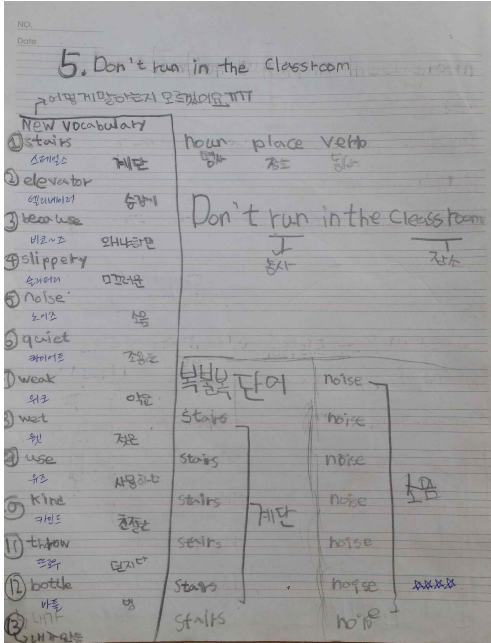 NO.
Date
5. Don't run in the Classroom
어떻게말하는지 모르겠어요 ㅠㅠ
New Vocabulary
① stairs
스테얼스 계단
② elevator
엘리베이터
③ because
비코즈 왜냐하면
④ slippery
미끄러운
⑤ noise
노이즈 소음
⑥ quiet
콰이어트 조용한
weak
위크 약한
wet
웻 젖은
use
유즈 사용하다
kind
카인드 친절한
⑪ throw
던지다
⑫ bottle
바틀 병
⑬ 내가
noun place verb
명사 장소 동사
Don't run in the Cleassroom
동사 장소
복불복 단어
stairs
stairs
stairs
stairs
stairs
stairs
stairs
계단
noise
noise
noise
noise
noise
noise
noise
소음
☆☆☆☆